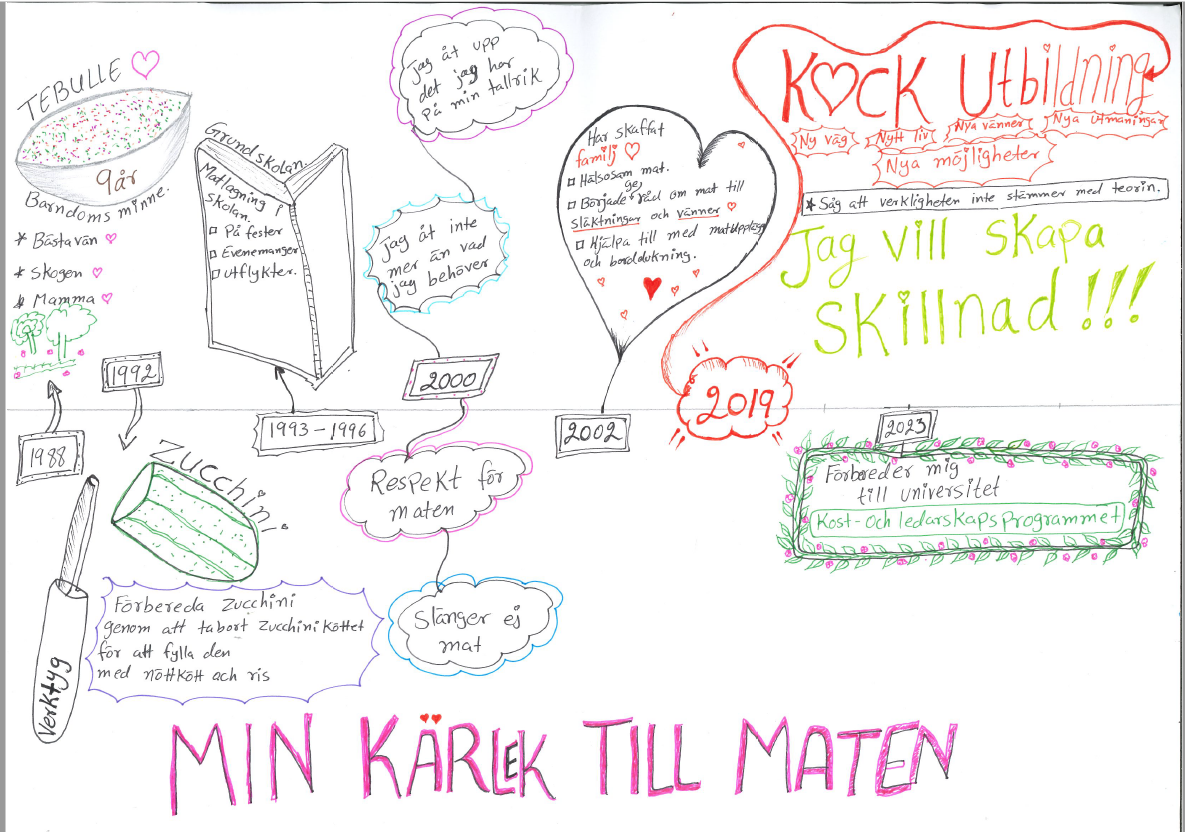 TEBULLE
9år
Barndoms minne.
* Bästa vän
* Skogen
* Mamma
1988
1992
Zucchini
Verktyg
Förbereda zucchini
genom att tabort zucchini köttet
för att fylla den
med nöttkött och ris
Grundskolan.
Matlagning i
skolan.
På fester
Evenemanger
utflykter.
1993-1996
Jag åt upp
det jag har
på min tallrik
Jag åt inte
mer än vad
jag behöver
2000
Respekt för
maten
Slänger ej
mat
Har skaffat
familj
Hälsosam mat.
ge
Började råd om mat till
släktningar och vänner
Hjälpa till med matupplägg
och borddukning.
2002
2019
KOCK Utbildning
Ny väg
Nytt liv
Nya vänner
Nya utmaningar
Nya möjligheter
* Såg att verkligheten inte stämmer med teorin.
Jag vill skapa
skillnad!!!
2023
Förbereder mig
till universitet
Kost- och ledarskapsprogrammet
MIN KÄRLEK TILL MATEN